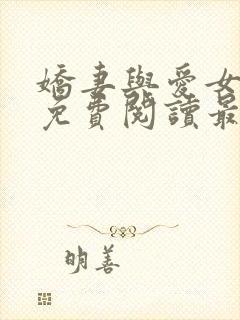 嬌妻與愛女
免費閱讀最
明善